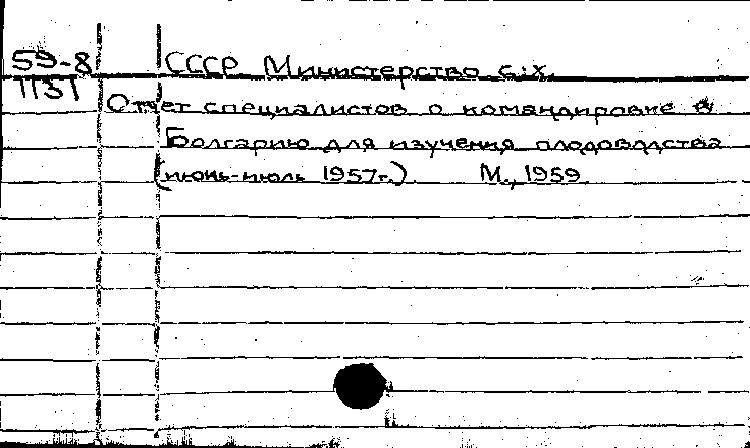 59-8 СССР Министерство с.х.
1131 Отчет специалистов о командировке в
Болгарию для изучения плодоводства
(июнь-июль 1957г.) М., 1959